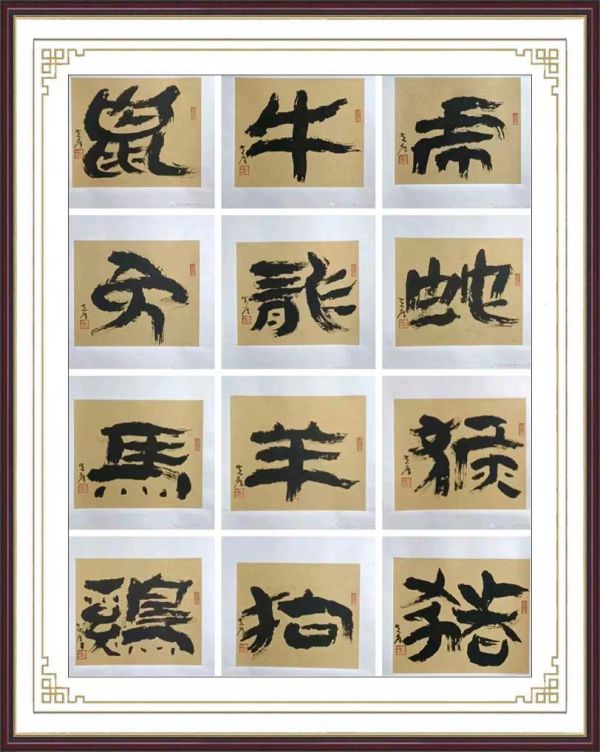 鼠 牛 虎
兔 龍 蛇
馬 羊 猴
鷄 狗 豬